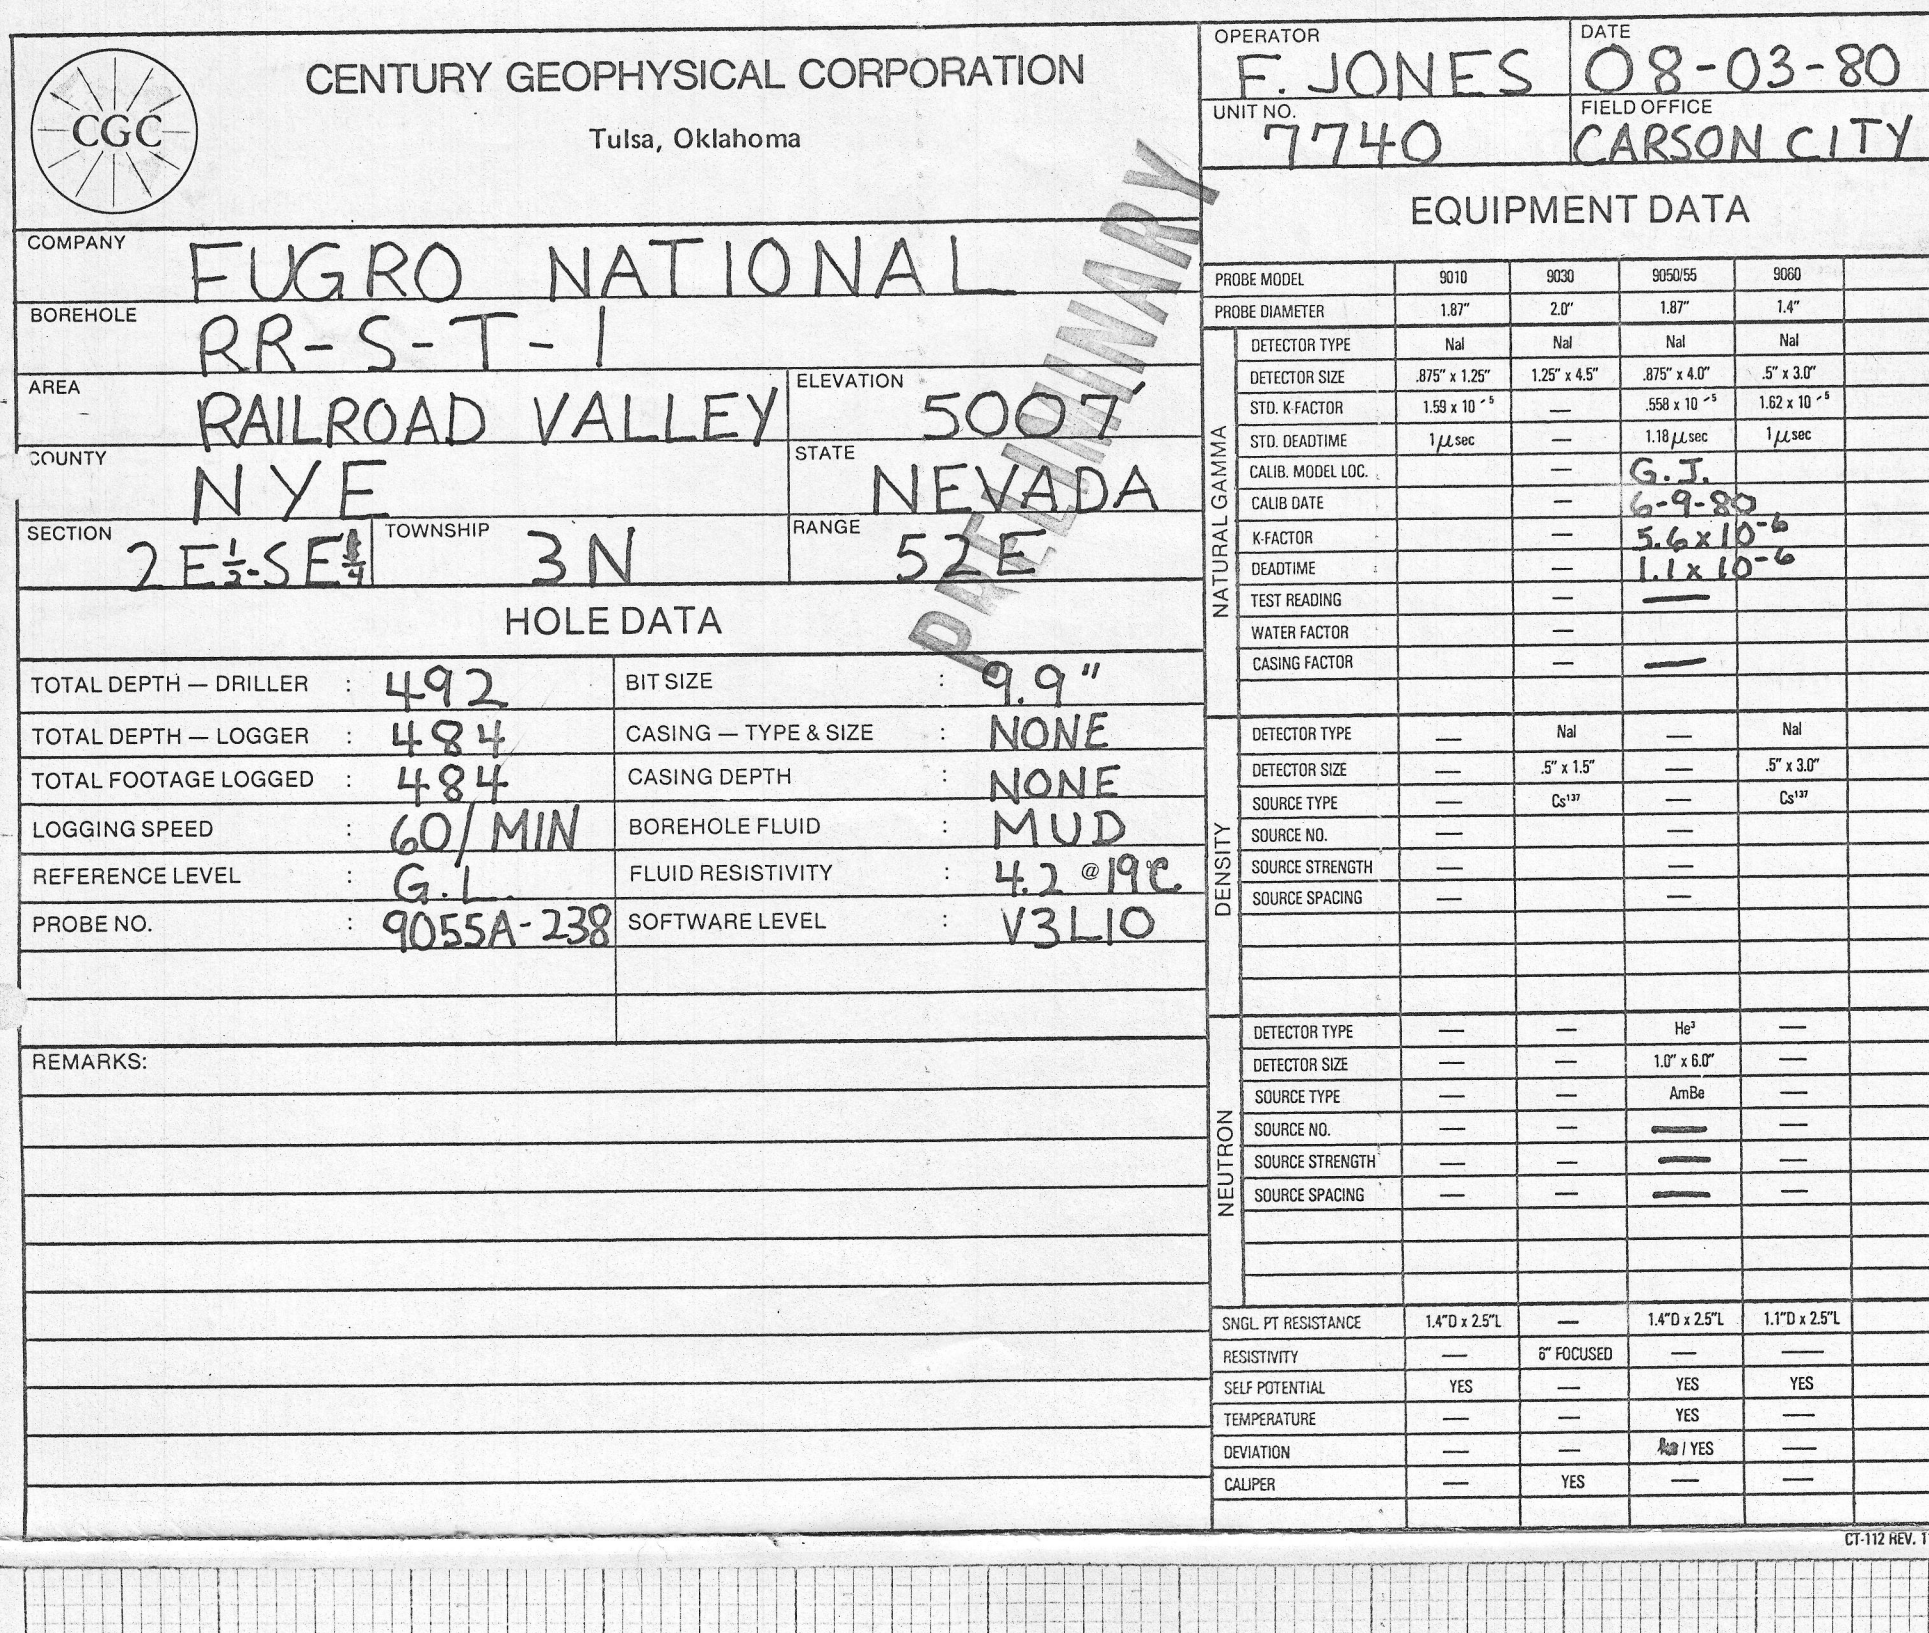 CGC
CENTURY GEOPHYSICAL CORPORATION
Tulsa, Oklahoma
PRELIMINARY
OPERATOR F. JONES DATE 08-03-80
UNIT NO. 7740 FIELD OFFICE CARSON CITY
COMPANY FUGRO NATIONAL
BOREHOLE RR-S-T-1
AREA RAILROAD VALLEY ELEVATION 5007'
COUNTY NYE STATE NEVADA
SECTION 2 E½-SE¼ TOWNSHIP 3N RANGE 52E
HOLE DATA
TOTAL DEPTH — DRILLER : 492 BIT SIZE : 9.9"
TOTAL DEPTH — LOGGER : 484 CASING — TYPE & SIZE : NONE
TOTAL FOOTAGE LOGGED : 484 CASING DEPTH : NONE
LOGGING SPEED : 60/MIN BOREHOLE FLUID : MUD
REFERENCE LEVEL : G.L. FLUID RESISTIVITY : 4.2 @ 19C
PROBE NO. : 9055A-238 SOFTWARE LEVEL : V3L10
REMARKS:
EQUIPMENT DATA
PROBE MODEL 9010 9030 9050/55 9060
PROBE DIAMETER 1.87" 2.0" 1.87" 1.4"
NATURAL GAMMA
DETECTOR TYPE NaI NaI NaI NaI
DETECTOR SIZE .875" x 1.25" 1.25" x 4.5" .875" x 4.0" .5" x 3.0"
STD. K-FACTOR 1.59 x 10⁻⁵ — .558 x 10⁻⁵ 1.62 x 10⁻⁵
STD. DEADTIME 1 µsec — 1.18 µsec 1 µsec
CALIB. MODEL LOC. — G.J.
CALIB DATE — 6-9-80
K-FACTOR — 5.6 x 10⁻⁶
DEADTIME — 1.1 x 10⁻⁶
TEST READING — —
WATER FACTOR —
CASING FACTOR — —
DENSITY
DETECTOR TYPE — NaI — NaI
DETECTOR SIZE — .5" x 1.5" — .5" x 3.0"
SOURCE TYPE — Cs¹³⁷ — Cs¹³⁷
SOURCE NO. — —
SOURCE STRENGTH — —
SOURCE SPACING — —
NEUTRON
DETECTOR TYPE — — He³ —
DETECTOR SIZE — — 1.0" x 6.0" —
SOURCE TYPE — — AmBe —
SOURCE NO. — — — —
SOURCE STRENGTH — — — —
SOURCE SPACING — — — —
SNGL. PT RESISTANCE 1.4"D x 2.5"L — 1.4"D x 2.5"L 1.1"D x 2.5"L
RESISTIVITY — 6" FOCUSED — —
SELF POTENTIAL YES — YES YES
TEMPERATURE — — YES —
DEVIATION — — / YES —
CALIPER — YES — —
CT-112 REV.